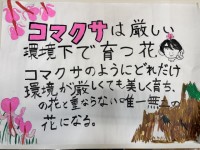 コマクサは厳しい
環境下で育つ花
コマクサのようにどれだけ
環境が厳しくても美しく育ち、
の花と重ならない唯一無二の
花になる。